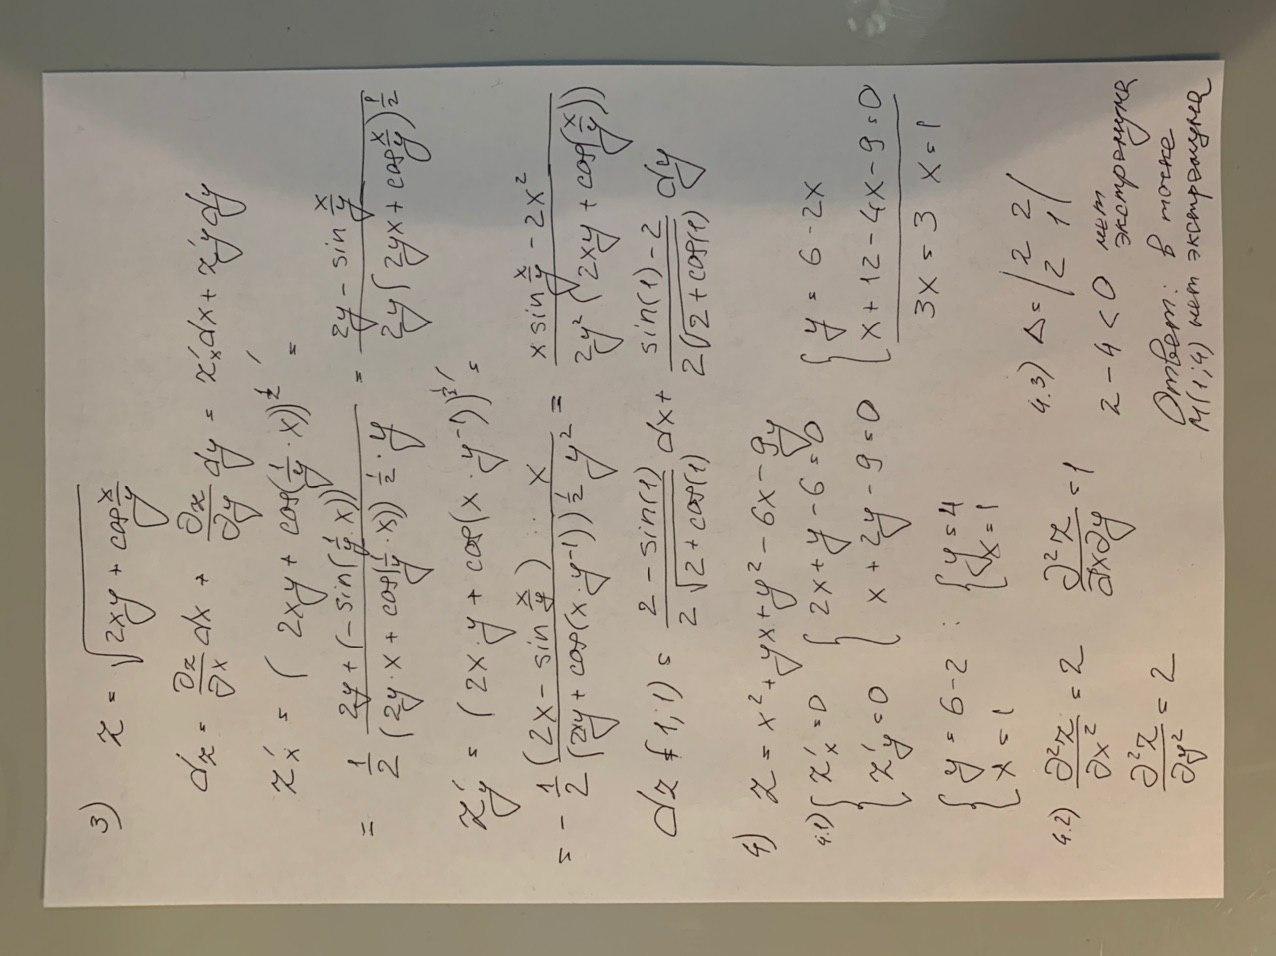 3) z = √(2xy + cos x/y)
dz = ∂z/∂x dx + ∂z/∂y dy = z'x dx + z'y dy
z'x = (2xy + cos(1/y · x))^(1/2)' =
= 1/2 (2y + (-sin(1/y · x)))/((2y·x + cos(1/y · x))^(1/2) · y) = (2y - sin x/y)/(2y(2yx + cos x/y)^(1/2))
z'y = (2x·y + cos(x · y^(-1)))^(1/2)' =
= - 1/2 (2x - sin x/y) ·· x/((2xy + cos(x·y^(-1)))^(1/2) y²) = (x sin x/y - 2x²)/(2y² (2xy + cos(x/y)))
dz (1;1) = (2 - sin(1))/(2√(2 + cos(1))) dx + (sin(1) - 2)/(2(√(2 + cos(1)) dy
4) z = x² + yx + y² - 6x - 9y
4.1) { z'x = 0 { 2x + y - 6 = 0 { y = 6 - 2x
z'y = 0 x + 2y - 9 = 0 x + 12 - 4x - 9 = 0
3x = 3 x = 1
{ y = 6 - 2 : { y = 4
x = 1 x = 1
4.2) ∂²z/∂x² = 2 ∂²z/∂x∂y = 1
∂²z/∂y² = 2
4.3) Δ = |2 2|
|2 1|
2 - 4 < 0 нет
экстремума
Ответ: в точке
M(1;4) нет экстремума